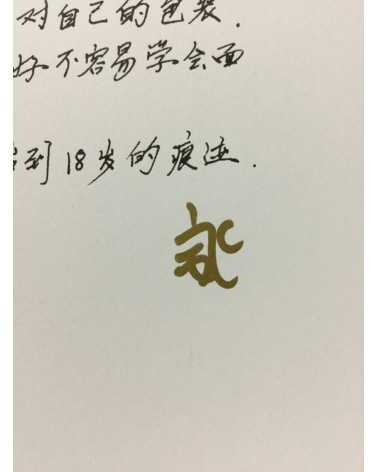 对自己的包装.
好不容易学会面
到18岁的痕迹.